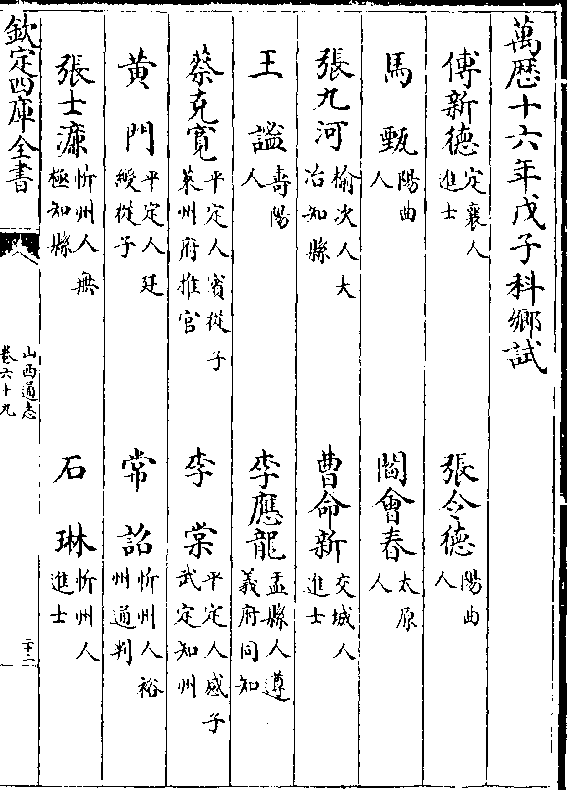 萬歴十六年戊子科鄉試
傅新德 定襄人進士
張令德 陽曲人
馬甄 陽曲人
閻會春 太原人
張九河 榆次人大冶知縣
曹命新 交城人進士
王謐 壽陽人
李應龍 盂縣人遵義府同知
蔡克寛 平定人賓從子萊州府推官
李棠 平定人感子武定知州
黄門 平定人廷綬從子
常詔 忻州人裕州通判
張士濂 忻州人無極知縣
石琳 忻州人進士
欽定四庫全書
山西通志
卷六十九
二十二